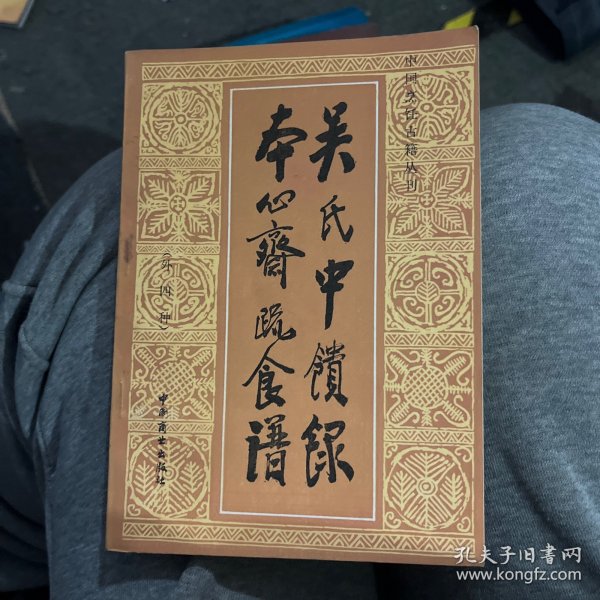 中国烹饪古籍丛刊
吴氏中馈录
本心斋疏食谱
（外四种）
中国商业出版社
孔夫子旧书网
www.kongfz.com